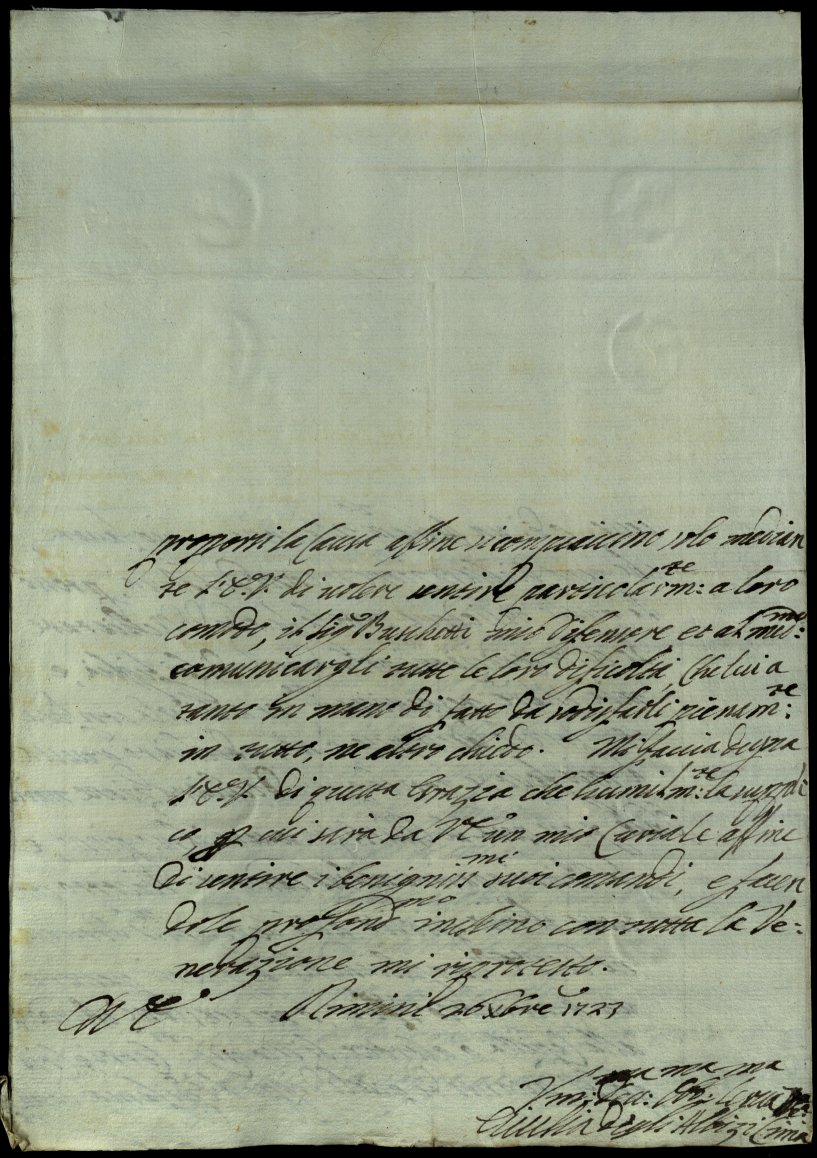 proporsi la Causa affine si compiaccino solo median
te l'E.V. di volere sentire particolarm:te a loro
comodo, il sigr Buschetti mio difensore et al med:mo
comunicargli tutte le loro dificoltà, che lui a
tanto in mano di fatto da sodisfarli pienam:te
in tutto, ne altro chiedo. Mi faccia degna
l'E.V. di questa Grazia che humilm:te la suppli
co, e p cui sarà da VE un mio Curiale affine
di sentire i benigniss:mi suoi comandi, e facen
dole profondmo inchino con tutta la Ve=
nerazione mi riprotesto.
Rimini 26 Xbre 1723
Um:ma Dev:ma Obb:ma Serva
Giulia degli Albizi Cima